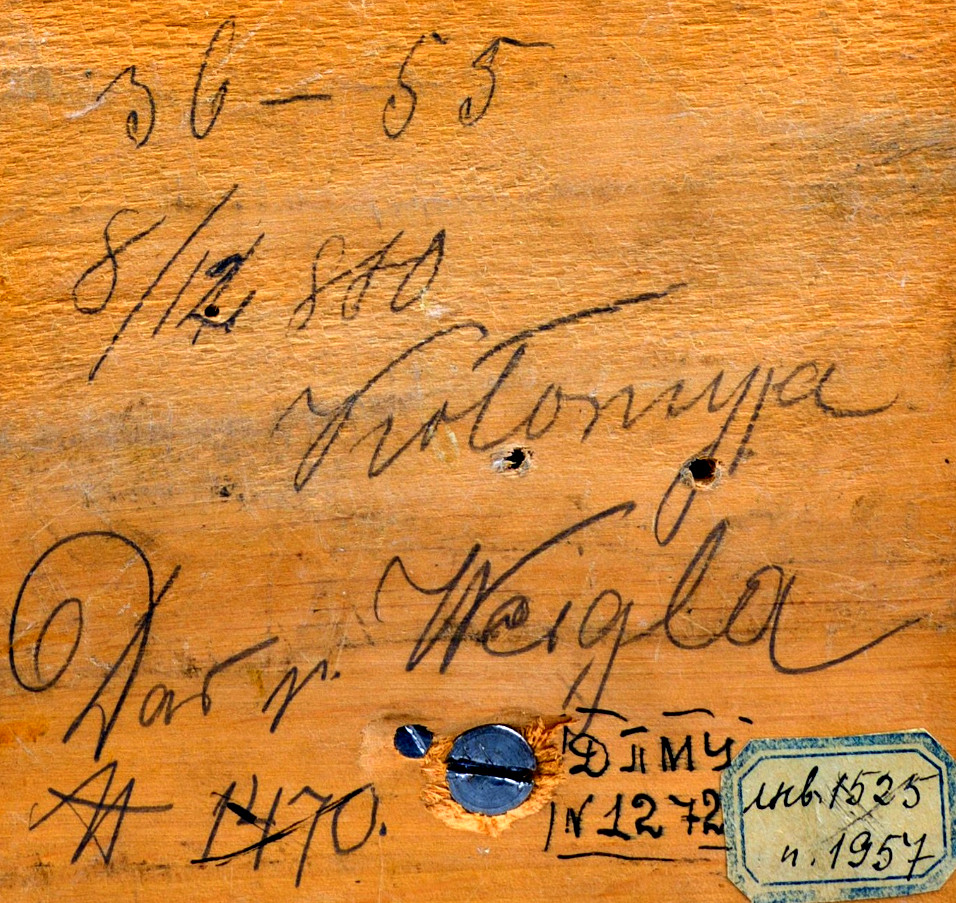 36 – 55
8/12 880
Kołomyja
Dar p. Weigla
A 1470.
ДПМУ
N 1272
инв. 1525
п. 1957